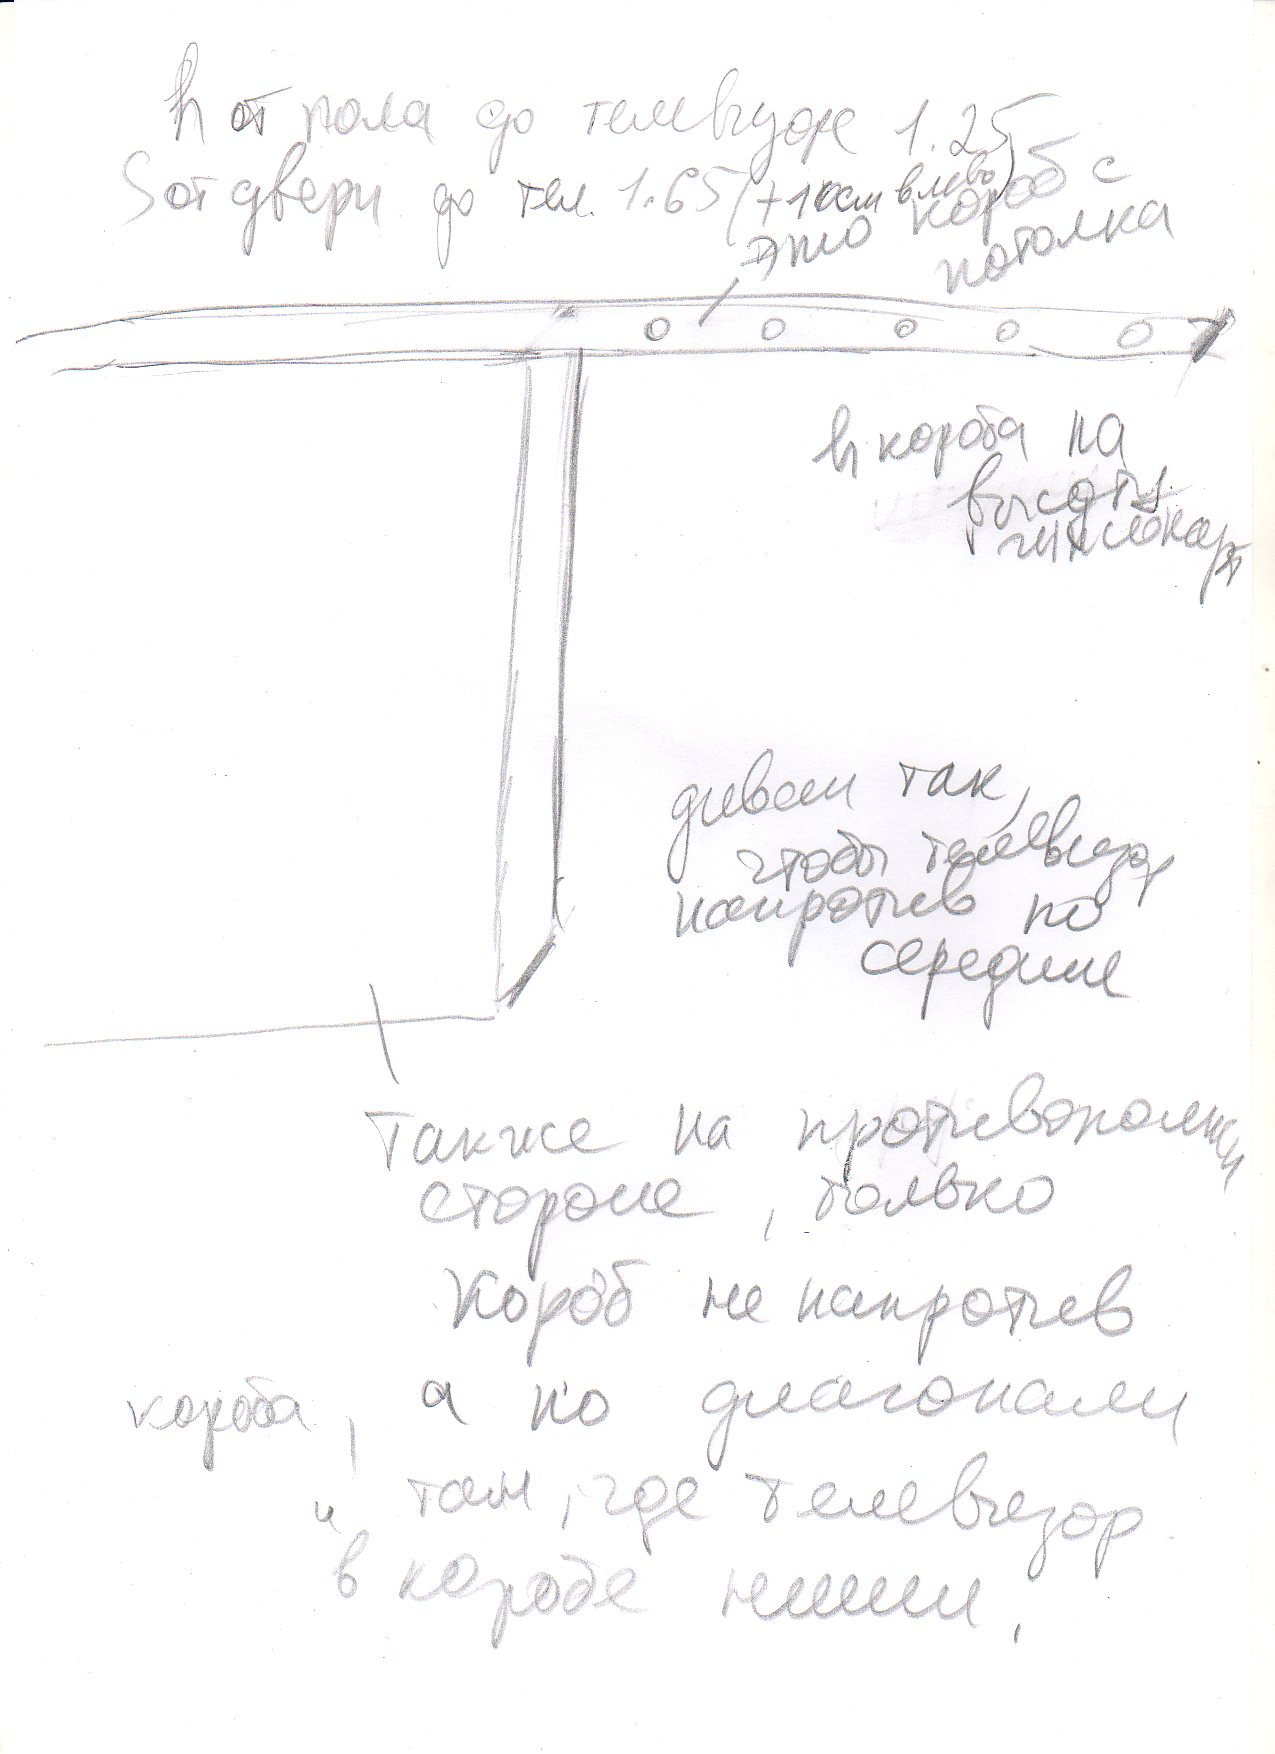 h от пола до телевизора 1.25
S от двери до тел. 1.65 (+10см влево)
это короб с
потолка
h короба на
высоту
гипсокарт
диван так,
чтобы телевизор
напротив по
середине
также на противополжн
стороне, только
короб не напротив
короба, а по диагонали
и там, где телевизор
в коробе ниши,